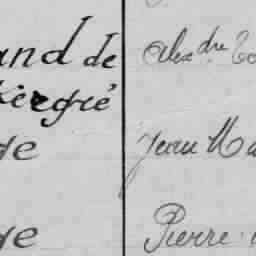 and de
Kergré
ge
ge
Alex dre
Jean Ma
Pierre